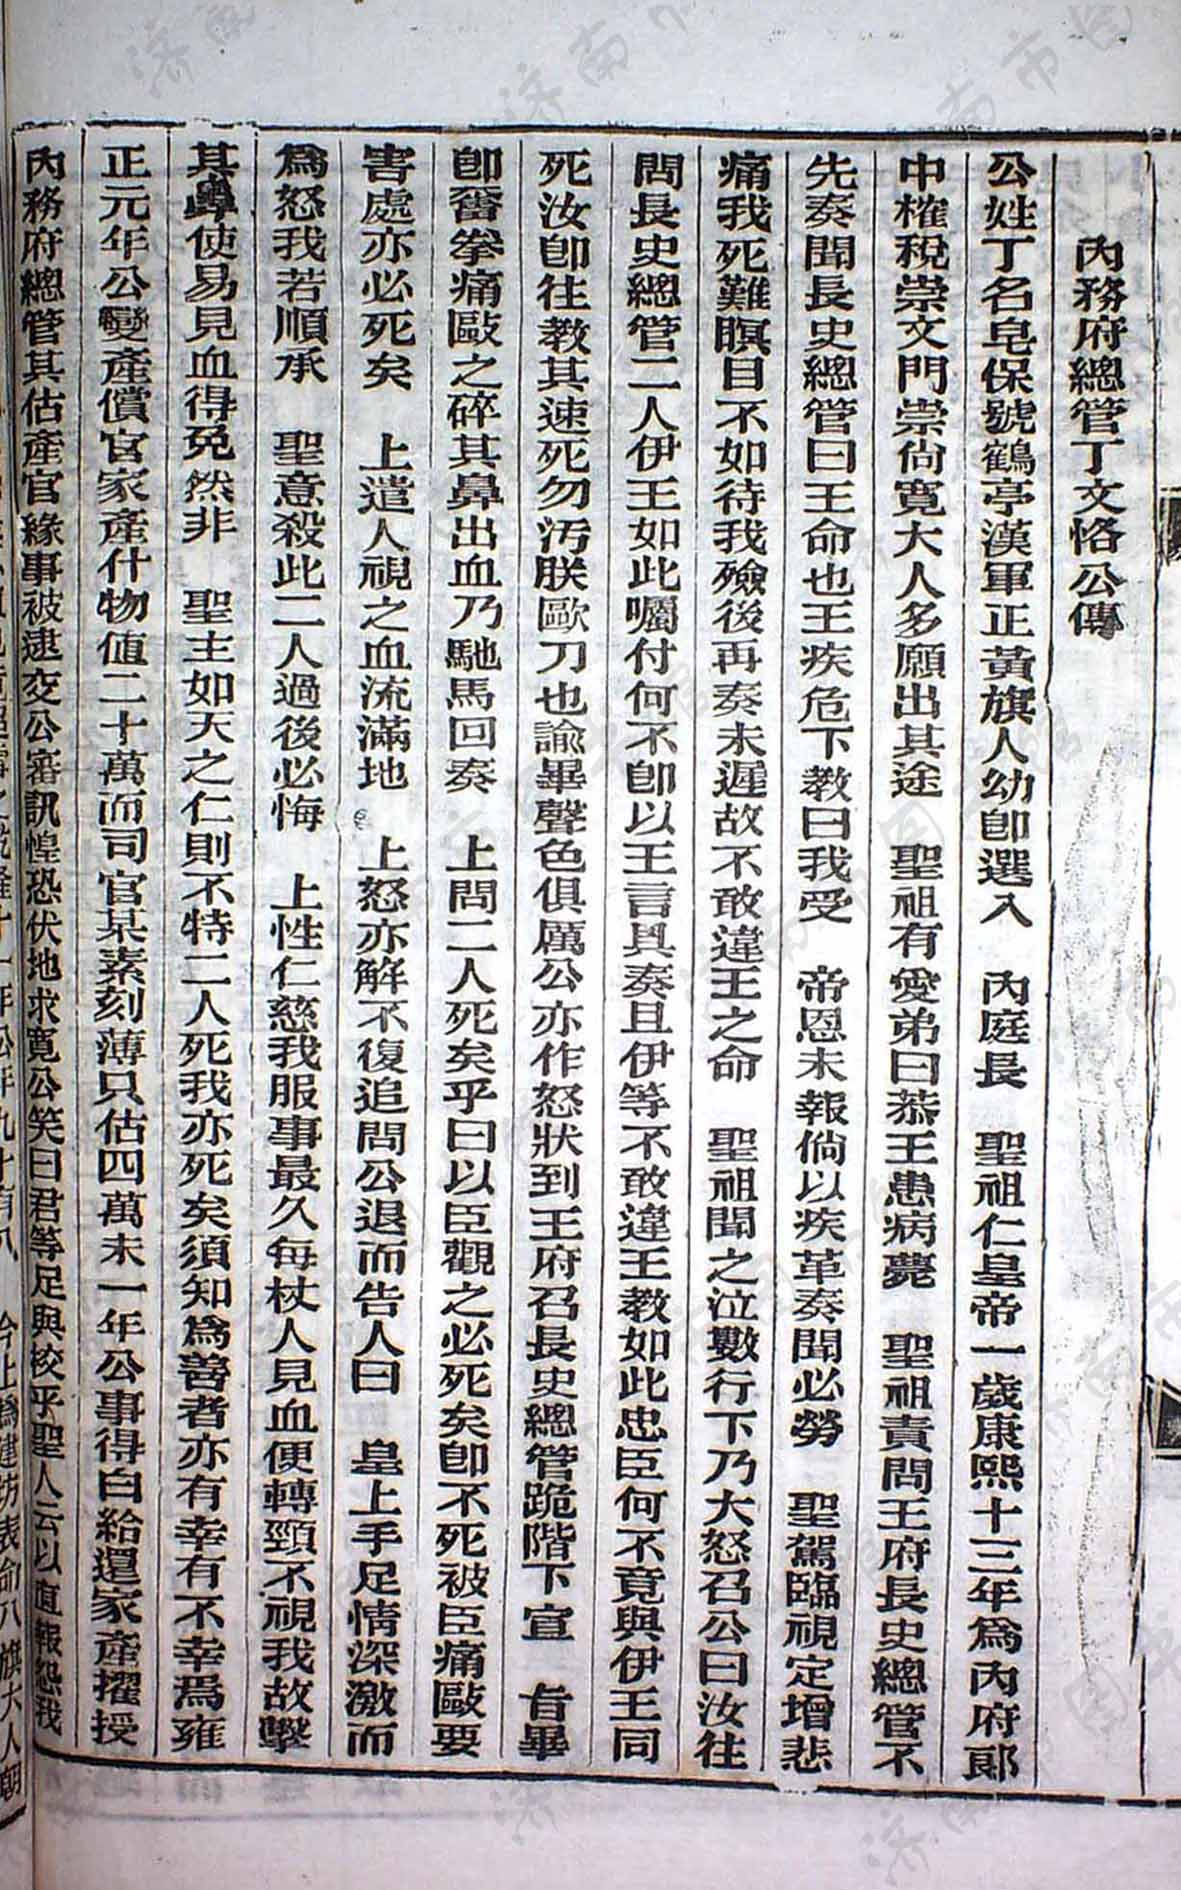 內務府總管丁文恪公傳
公姓丁名皂保號鶴亭漢軍正黃旗人幼卽選入　內庭長　聖祖仁皇帝一歲康熙十三年爲內府郞
中榷稅崇文門崇尙寬大人多願出其途　聖祖有愛弟曰恭王患病薨　聖祖責問王府長史總管不
先奏聞長史總管曰王命也王疾危下教曰我受　帝恩未報倘以疾革奏聞必勞　聖駕臨視定增悲
痛我死難瞑目不如待我殮後再奏未遲故不敢違王之命　聖祖聞之泣數行下乃大怒召公曰汝往
問長史總管二人伊王如此囑付何不卽以王言具奏且伊等不敢違王教如此忠臣何不竟與伊王同
死汝卽往教其速死勿汚朕歐刀也諭畢聲色俱厲公亦作怒狀到王府召長史總管跪階下宣　旨畢
卽奮拳痛毆之碎其鼻出血乃馳馬回奏　上問二人死矣乎曰以臣觀之必死矣卽不死被臣痛毆要
害處亦必死矣　上遣人視之血流滿地　上怒亦解不復追問公退而告人曰　皇上手足情深激而
爲怒我若順承　聖意殺此二人過後必悔　上性仁慈我服事最久每杖人見血便轉頸不視我故擊
其鼻使易見血得免然非　聖主如天之仁則不特二人死我亦死矣須知爲善者亦有幸有不幸焉雍
正元年公變產償官家產什物値二十萬而司官某素刻薄只估四萬未一年公事得白給還家產擢授
內務府總管其估產官緣事被逮交公審訊惶恐伏地求寬公笑曰君等足與校乎聖人云以直報怨我